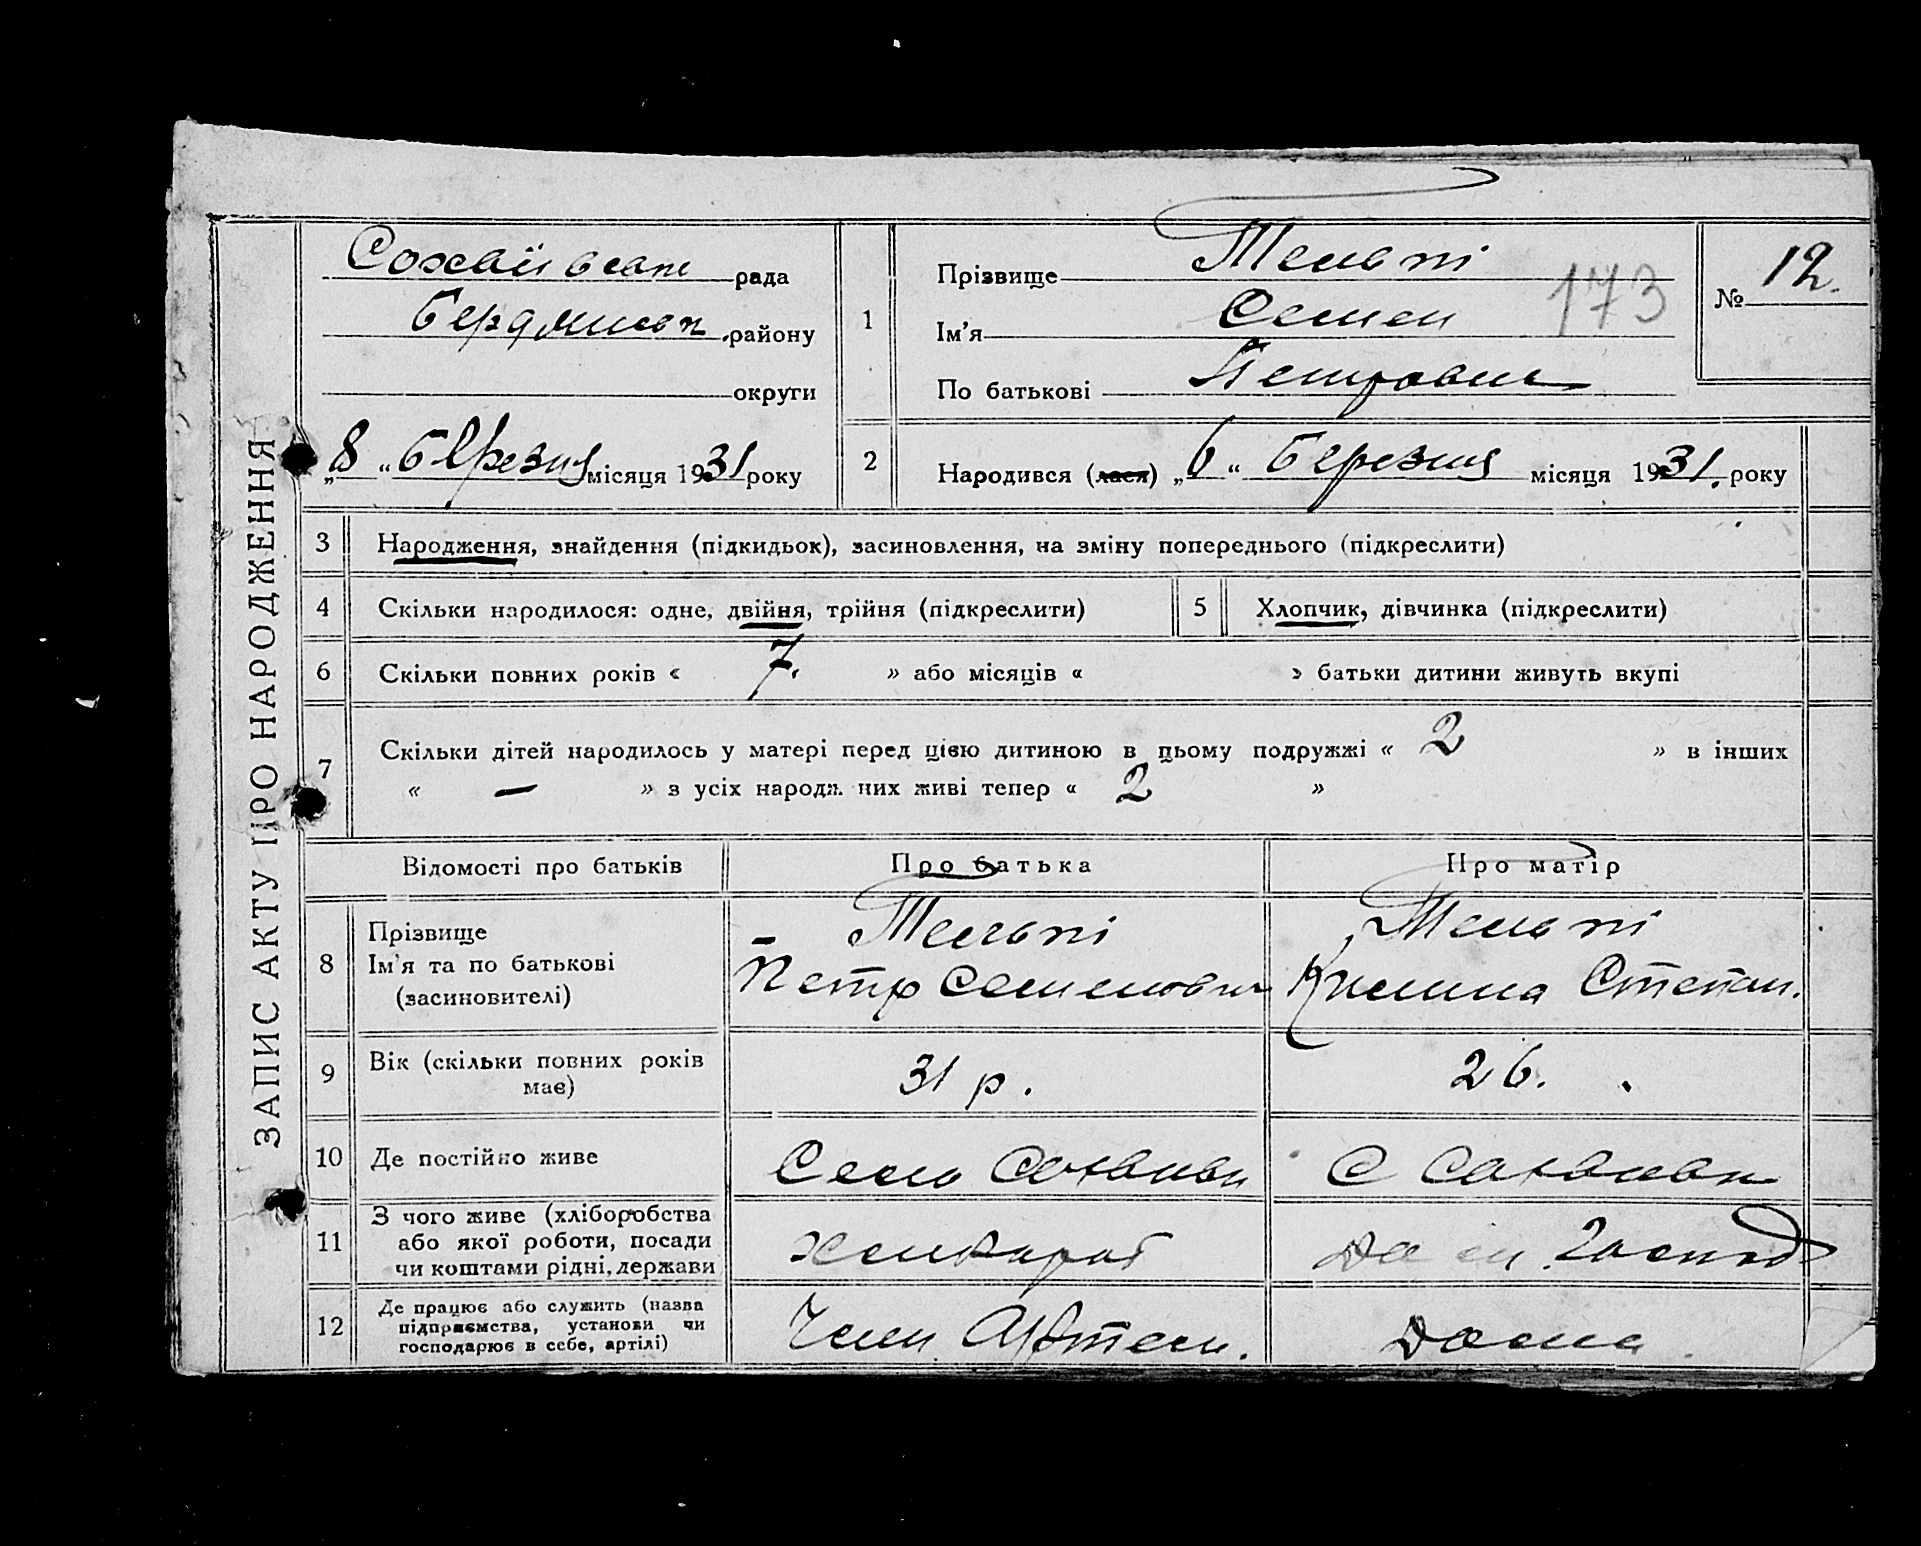 ЗАПИС АКТУ ПРО НАРОДЖЕННЯ
рада
району
округи
„8 “ березня місяця 1931 року
1
Прізвище
Ім'я Семен
По батькові Петрович
173
№ 12.
2
Народився (лася) „6 “ березня місяця 1931. року
3 Народження, знайдення (підкидьок), засиновлення, на зміну попереднього (підкреслити)
4 Скільки народилося: одне, двійня, трійня (підкреслити)
5 Хлопчик, дівчинка (підкреслити)
6 Скільки повних років « 7. » або місяців « » батьки дитини живуть вкупі
7 Скільки дітей народилось у матері перед цією дитиною в цьому подружжі « 2 » в інших
« — » з усіх народж них живі тепер « 2 »
Відомості про батьків Про батька Про матір
8 Прізвище
Ім'я та по батькові Петр Семенович Степан.
(засиновителі)
9 Вік (скільки повних років має) 31 р. 26.
10 Де постійно живе Село С
11 З чого живе (хліборобства
або якої роботи, посади
чи коштами рідні, держави
хлібороб Дом. господ
12 Де працює або служить (назва
підприємства, установи чи
господарює в себе, артілі)
Член Артели. Дома